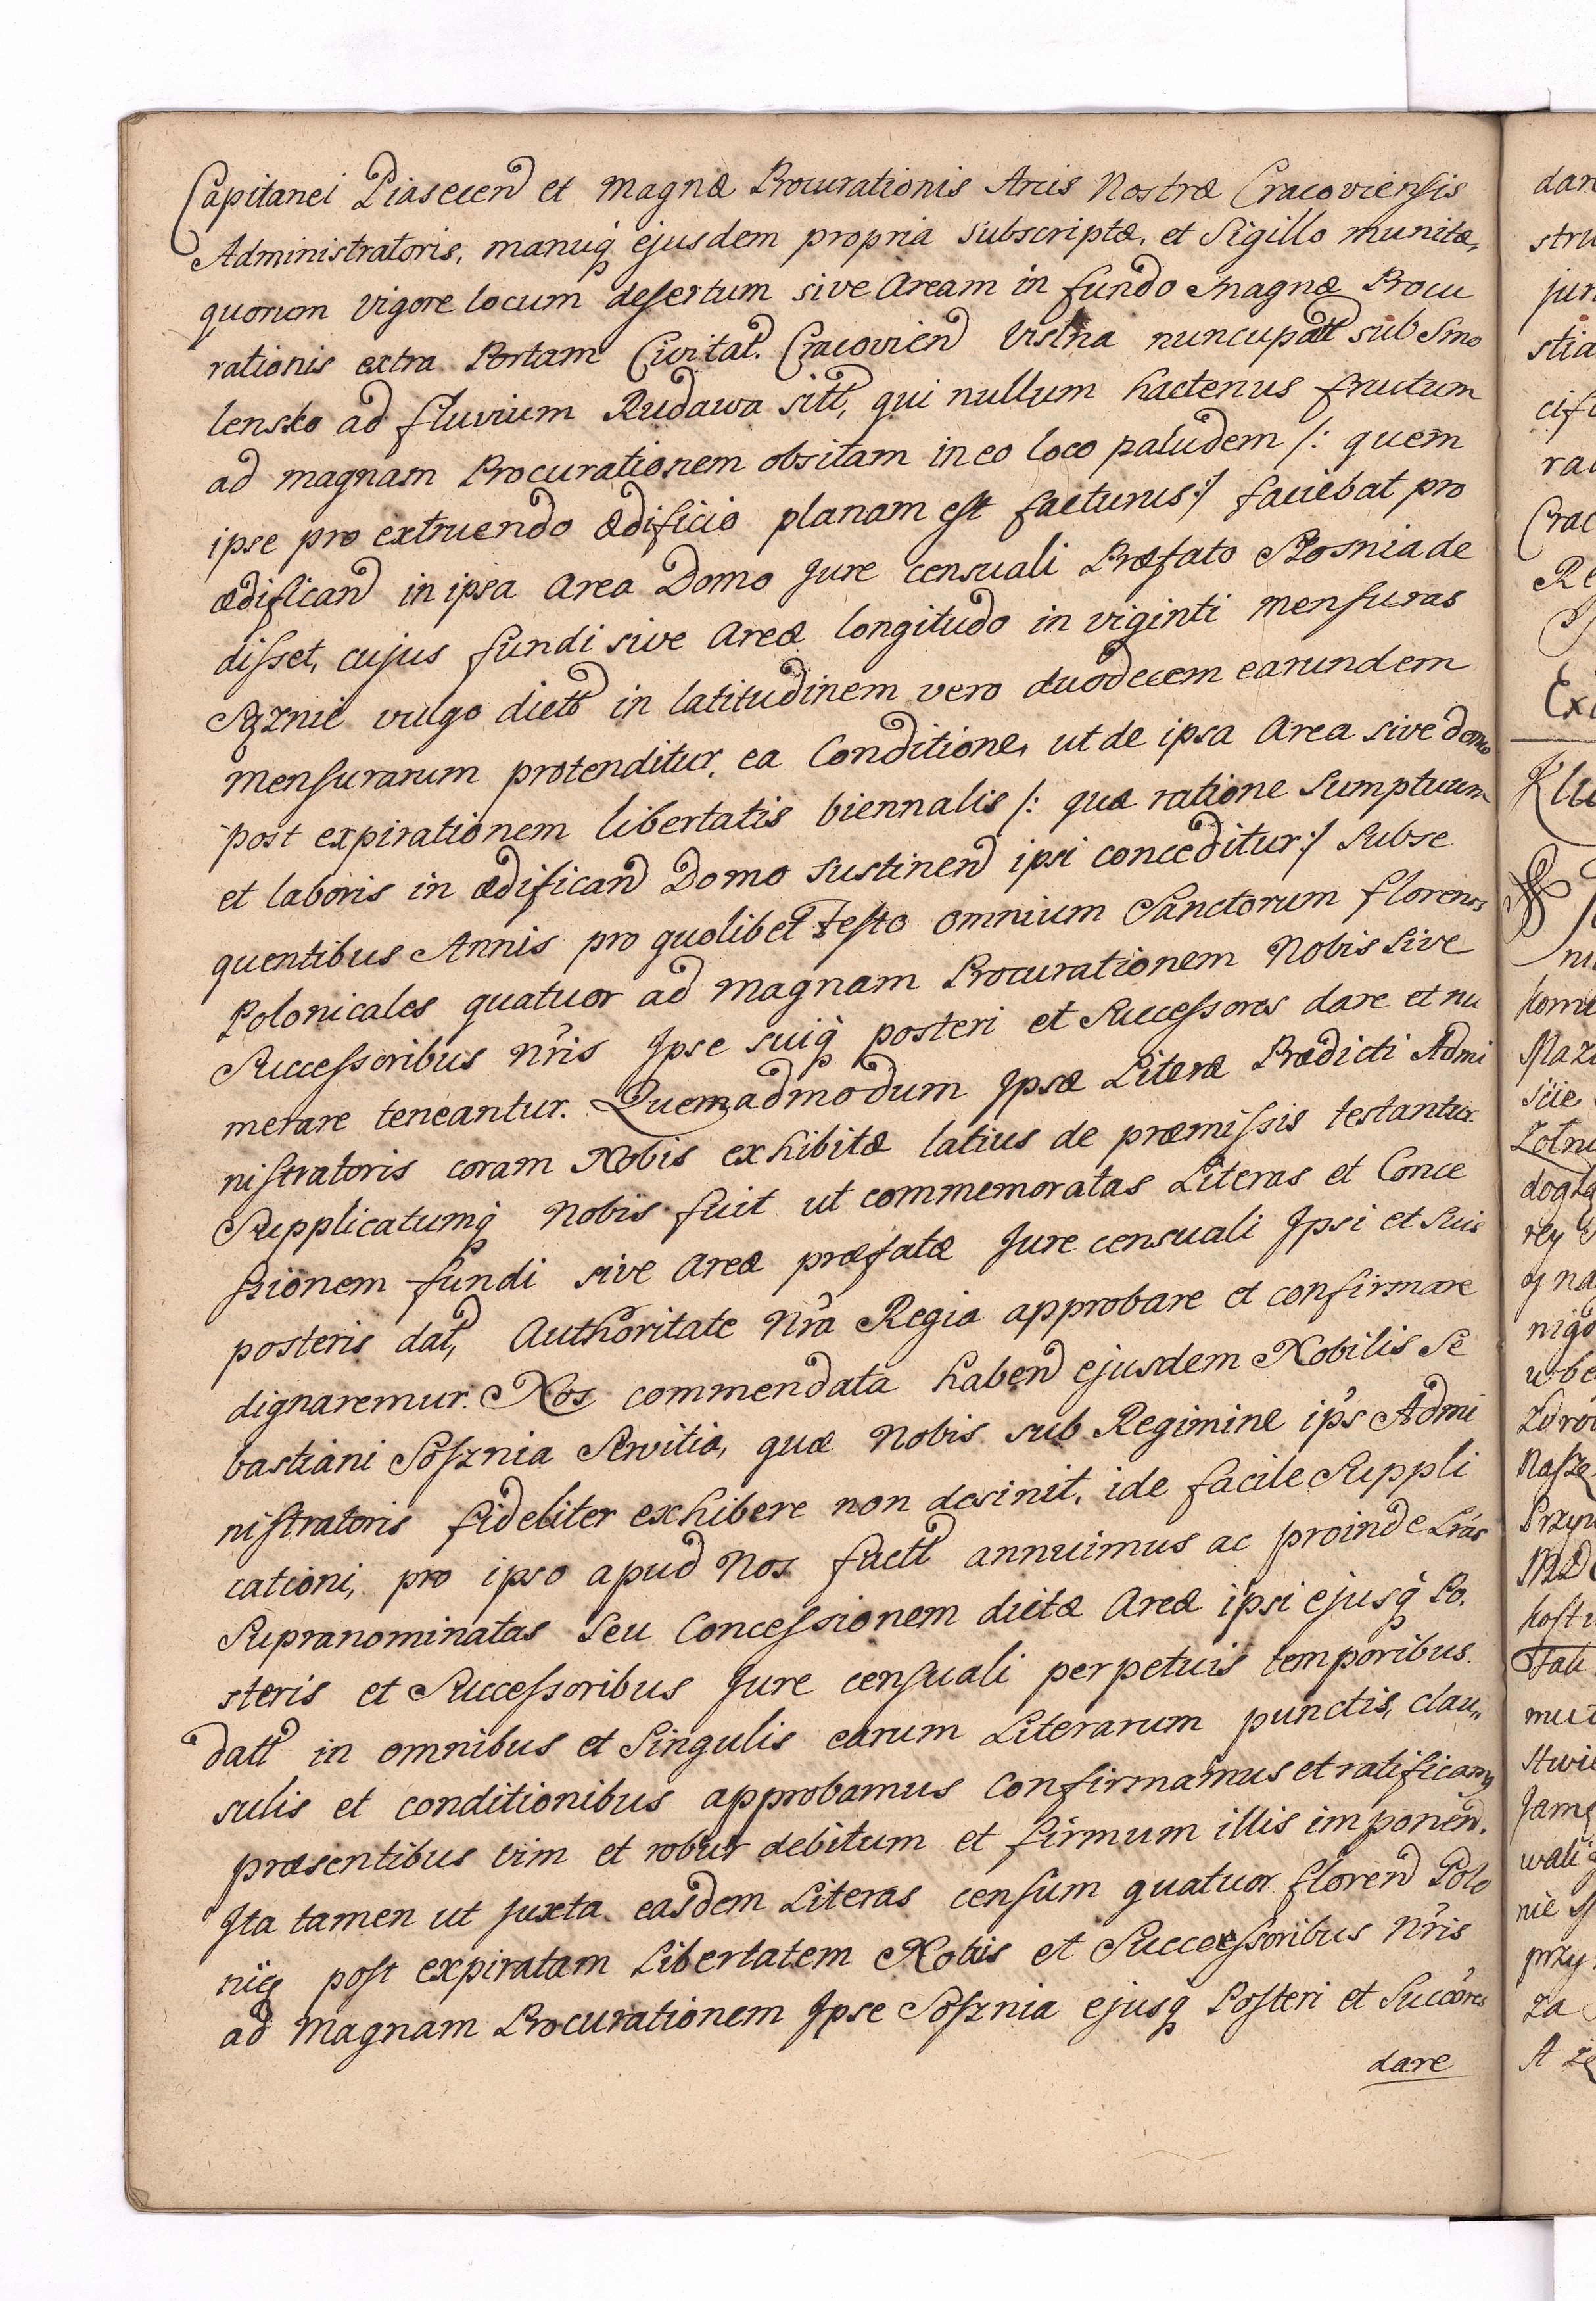 Capitanei Piasecen et magnæ Procurationis Arcis Nostræ Cracoviensis
Administratoris, manuq ejusdem propria subscriptæ, et Sigillo munitæ,
quorum vigore locum desertum sive Aream in fundo magnæ Procu
rationis extra Portam Civitat. Cracovien Vislna nuncupatt sub Smo
lensko ad fluvium Rudawa sitt, qui nullum hactenus fructum
ad magnam Procurationem obsitam in eo loco paludem /: quem
ipse pro extruendo ædificio planam est facturus :/ faciebat pro
ædifican in ipsa Area Domo Jure censuali Præfato Sosnia de
disset, cujus fundi sive Areæ longitudo in viginti mensuras
Sążnie vulgo dictt in latitudinem vero duodecem earundem
mensurarum protenditur, ea Conditione, ut de ipsa Area sive domo
post expirationem libertatis biennalis /: quæ ratione Sumptuum
et laboris in ædifican Domo sustinen ipsi conceditur :/ Subse
quentibus Annis pro quolibet Festo omnium Sanctorum florenos
Polonicales quatuor ad magnam Procurationem Nobis sive
Successoribus nris Ipse suiq posteri et Successores dare et nu
merare teneantur. Quemadmodum Ipsæ Literæ Prædicti Admi
nistratoris coram Nobis exhibitæ latius de præmissis testantur.
Supplicatumq Nobis fuit ut commemoratas Literas et Conce
ssionem fundi sive Areæ præfatæ Jure censuali Ipsi et suis
posteris dat, Authoritate nra Regia approbare et confirmare
dignaremur. Nos commendata haben ejusdem Nobilis Se
bastiani Sosznia Servitia, quæ Nobis sub Regimine ips Admi
nistratoris fideliter exhibere non desinit, ide facile Suppli
cationi, pro ipso apud Nos factt annuimus ac proinde Lras
Supranominatas Seu Concessionem dictæ Areæ ipsi ejusq Po.
steris et Successoribus Jure censuali perpetuis temporibus.
datt in omnibus et Singulis earum Literarum punctis, clau„
sulis et conditionibus approbamus Confirmamus et ratificamq
præsentibus vim et robur debitum et firmum illis imponen.
Ita tamen ut juxta easdem Literas censum quatuor floren Polo
niq post expiratam Libertatem Nobis et Successoribus nris
ad Magnam Procurationem Ipse Sosznia ejusq Posteri et Succōres
dare